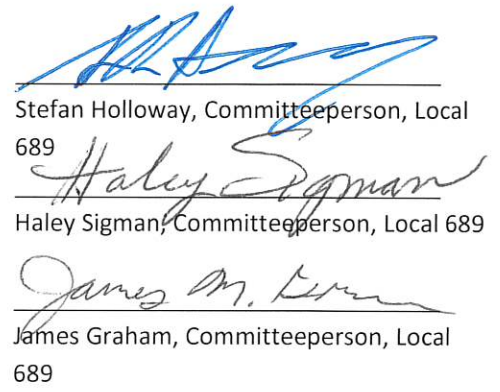 Stefan Holloway, Committeeperson, Local
689
Haley Sigman
Haley Sigman, Committeeperson, Local 689
James M.
James Graham, Committeeperson, Local
689